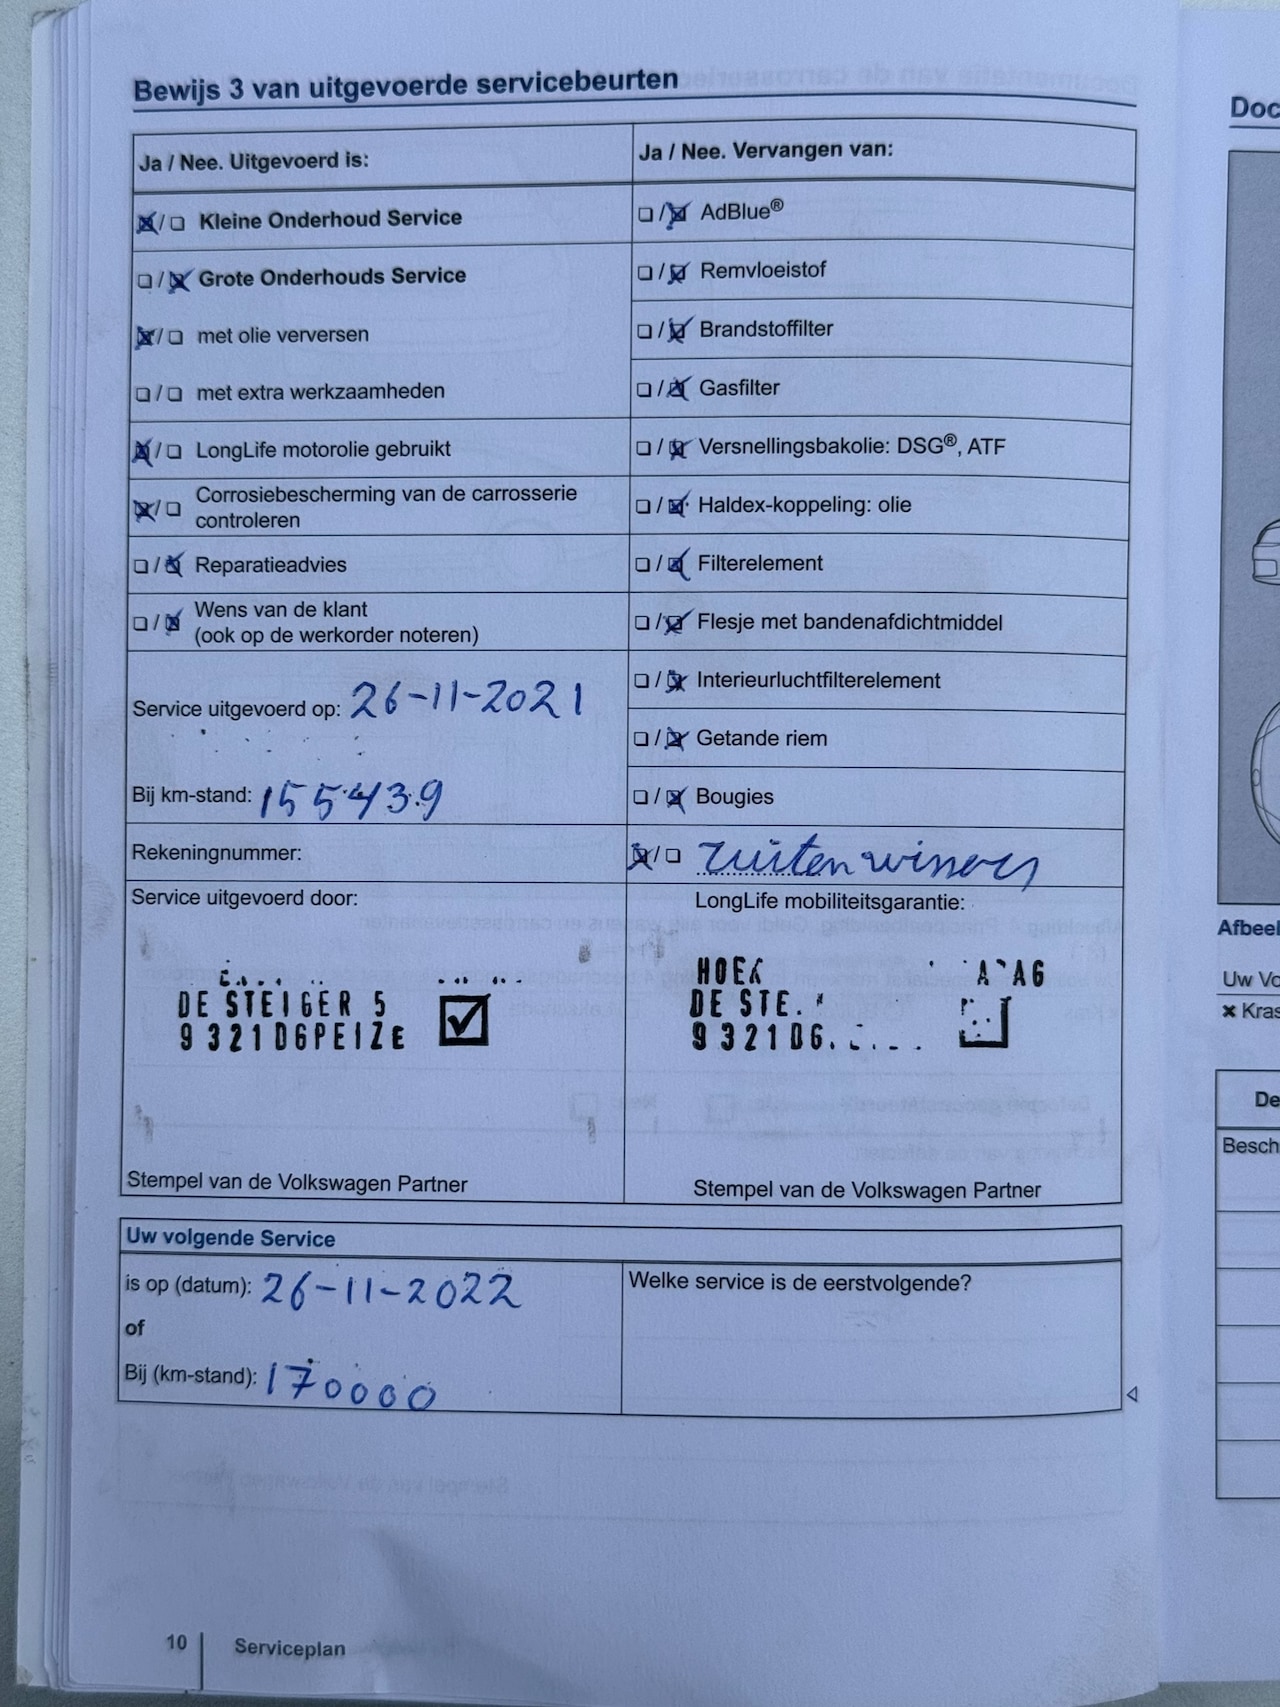 Bewijs 3 van uitgevoerde servicebeurten
Ja / Nee. Uitgevoerd is:
☒/☐ Kleine Onderhoud Service
☐/☒ Grote Onderhouds Service
☒/☐ met olie verversen
☐/☐ met extra werkzaamheden
☒/☐ LongLife motorolie gebruikt
☒/☐ Corrosiebescherming van de carrosserie
controleren
☐/☒ Reparatieadvies
☐/☒ Wens van de klant
(ook op de werkorder noteren)
Service uitgevoerd op: 26-11-2021
Bij km-stand: 155439
Rekeningnummer:
Service uitgevoerd door:
DE STEIGER 5
9321DGPEIZE
Stempel van de Volkswagen Partner
Ja / Nee. Vervangen van:
☐/☒ AdBlue®
☐/☒ Remvloeistof
☐/☒ Brandstoffilter
☐/☒ Gasfilter
☐/☒ Versnellingsbakolie: DSG®, ATF
☐/☒ Haldex-koppeling: olie
☐/☒ Filterelement
☐/☒ Flesje met bandenafdichtmiddel
☐/☒ Interieurluchtfilterelement
☐/☒ Getande riem
☐/☒ Bougies
☒/☐ ruitenwissers
LongLife mobiliteitsgarantie:
DE
9321DG
Stempel van de Volkswagen Partner
Uw volgende Service
is op (datum): 26-11-2022
of
Bij (km-stand): 170000
Welke service is de eerstvolgende?
10 Serviceplan
Doc
Afbeel
Uw Vo
× Kras
De
Besch